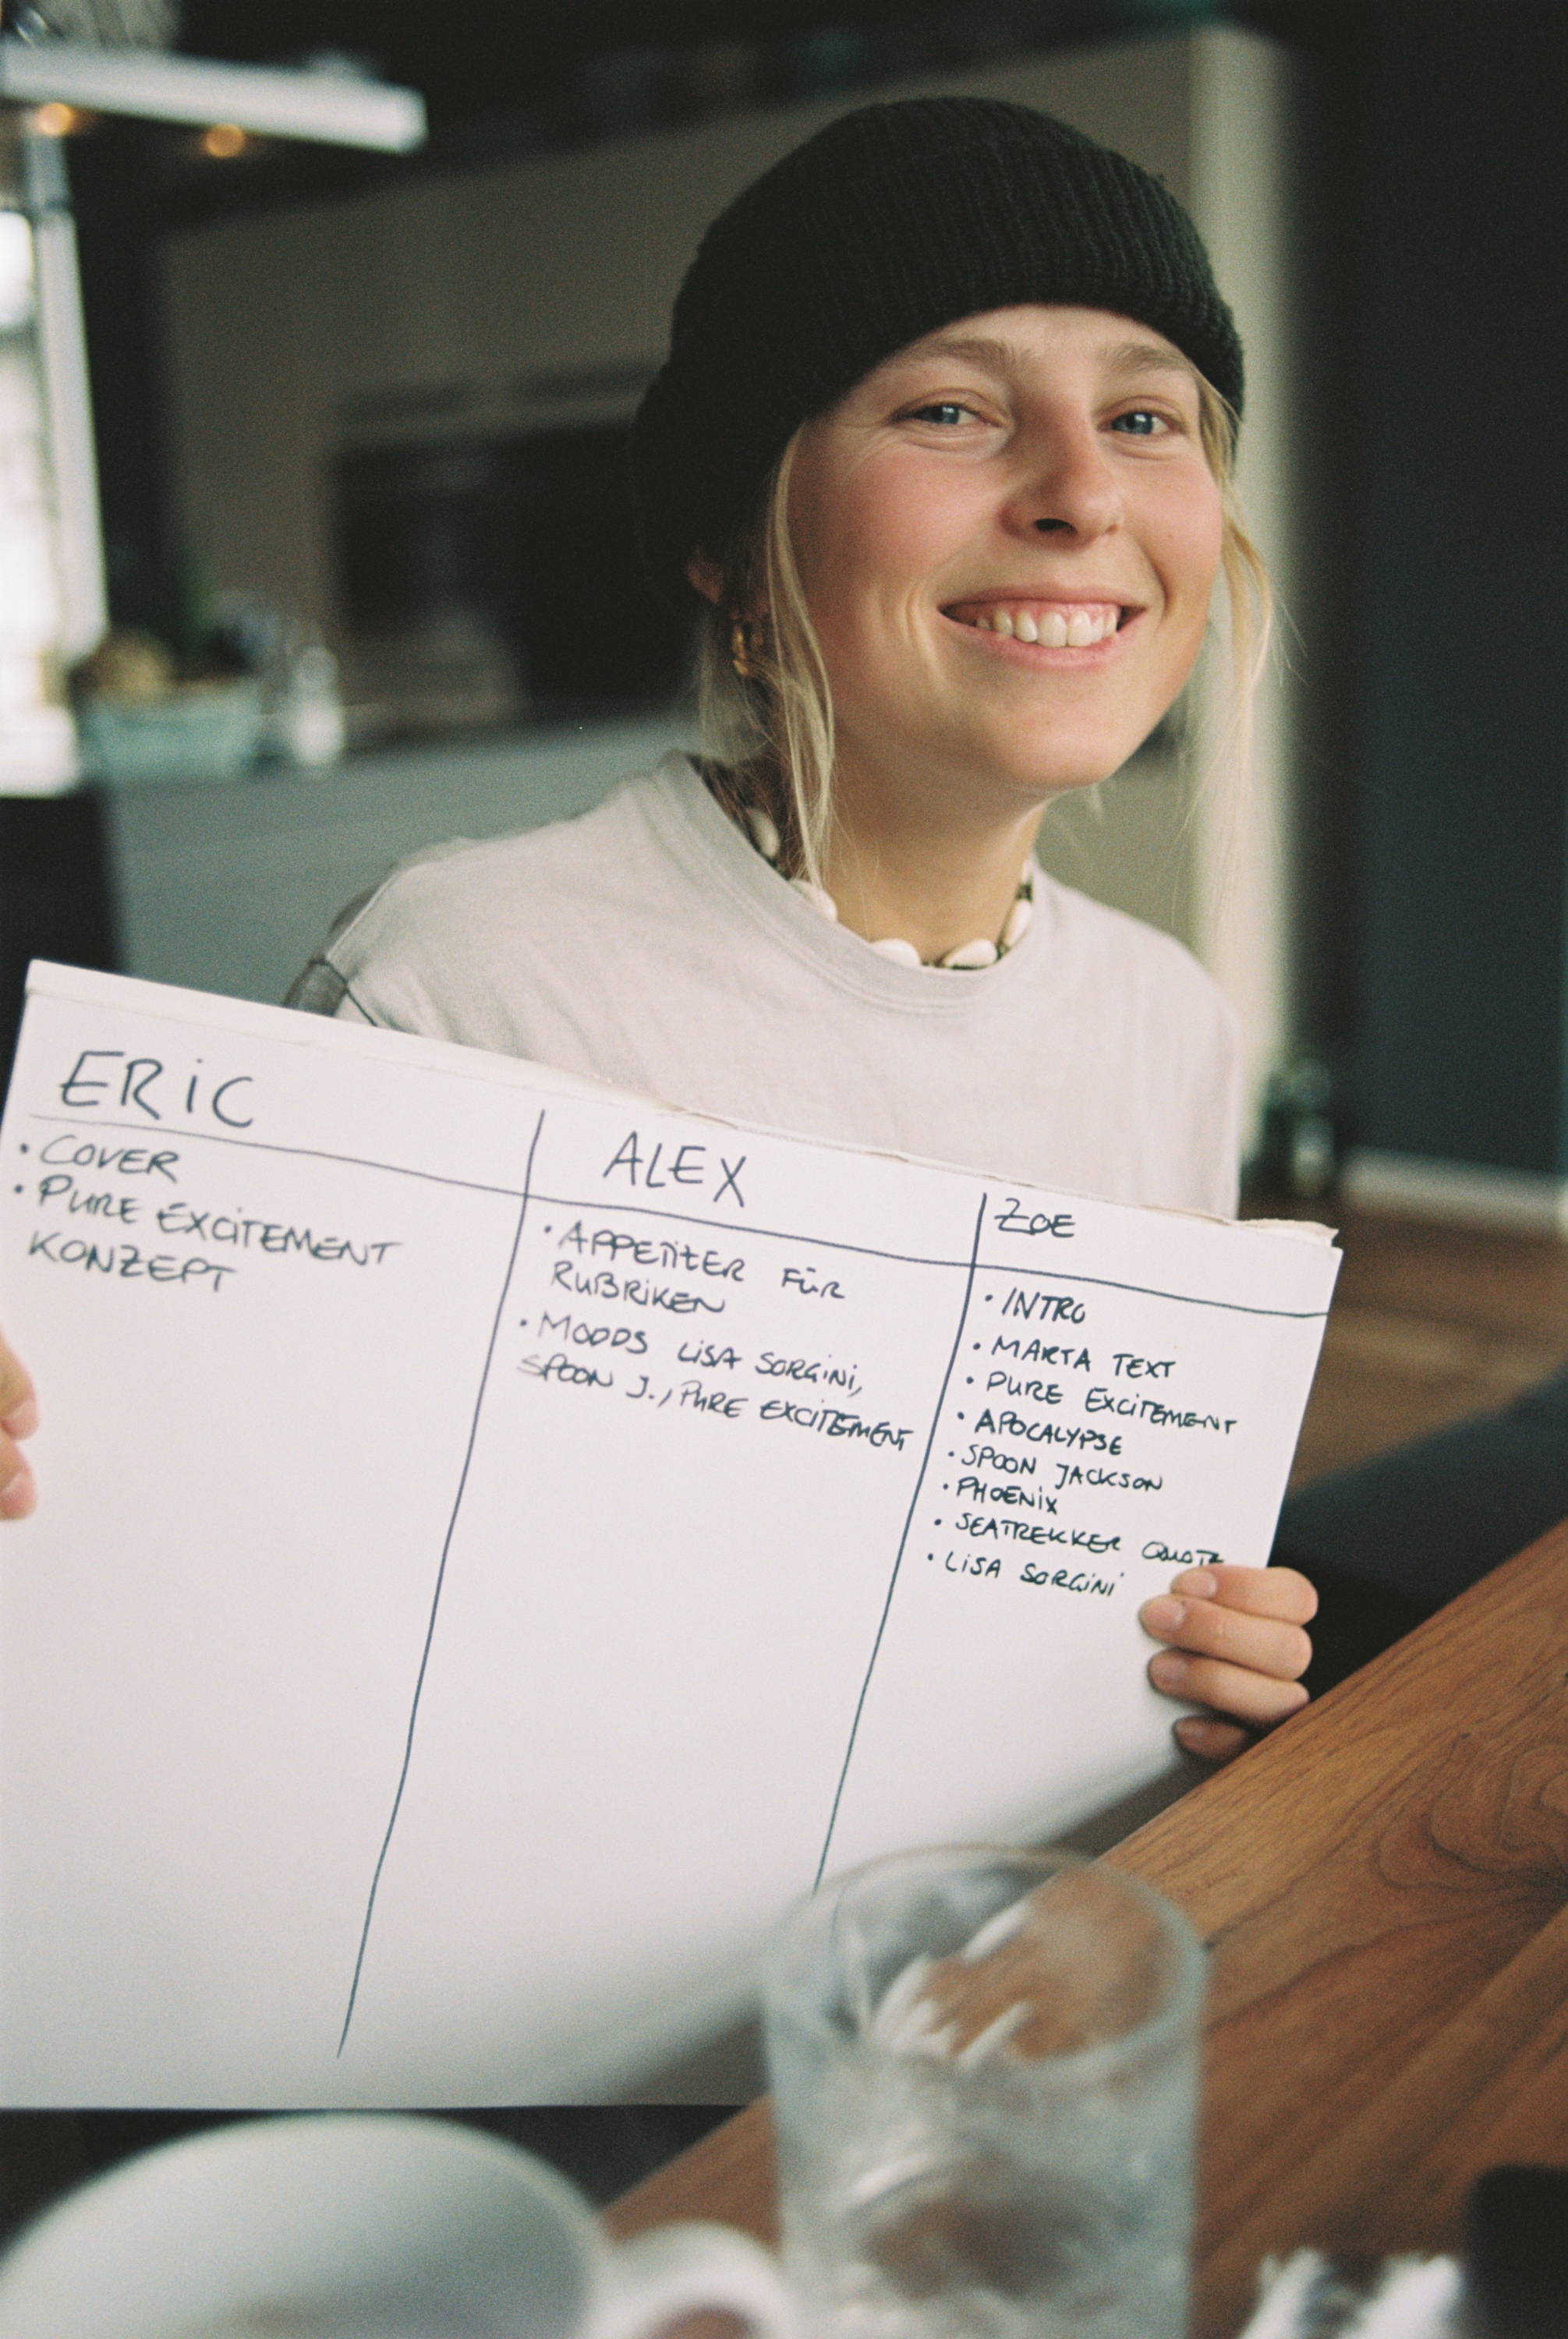 ERIC
• COVER
• PURE EXCITEMENT
KONZEPT
ALEX
• APPETIZER FÜR
RUBRIKEN
• MOODS LISA SORGINI,
SPOON J., PURE EXCITEMENT
ZOE
• INTRO
• MARTA TEXT
• PURE EXCITEMENT
• APOCALYPSE
• SPOON JACKSON
• PHOENIX
• SEATREKKER QUOTE
• LISA SORGINI